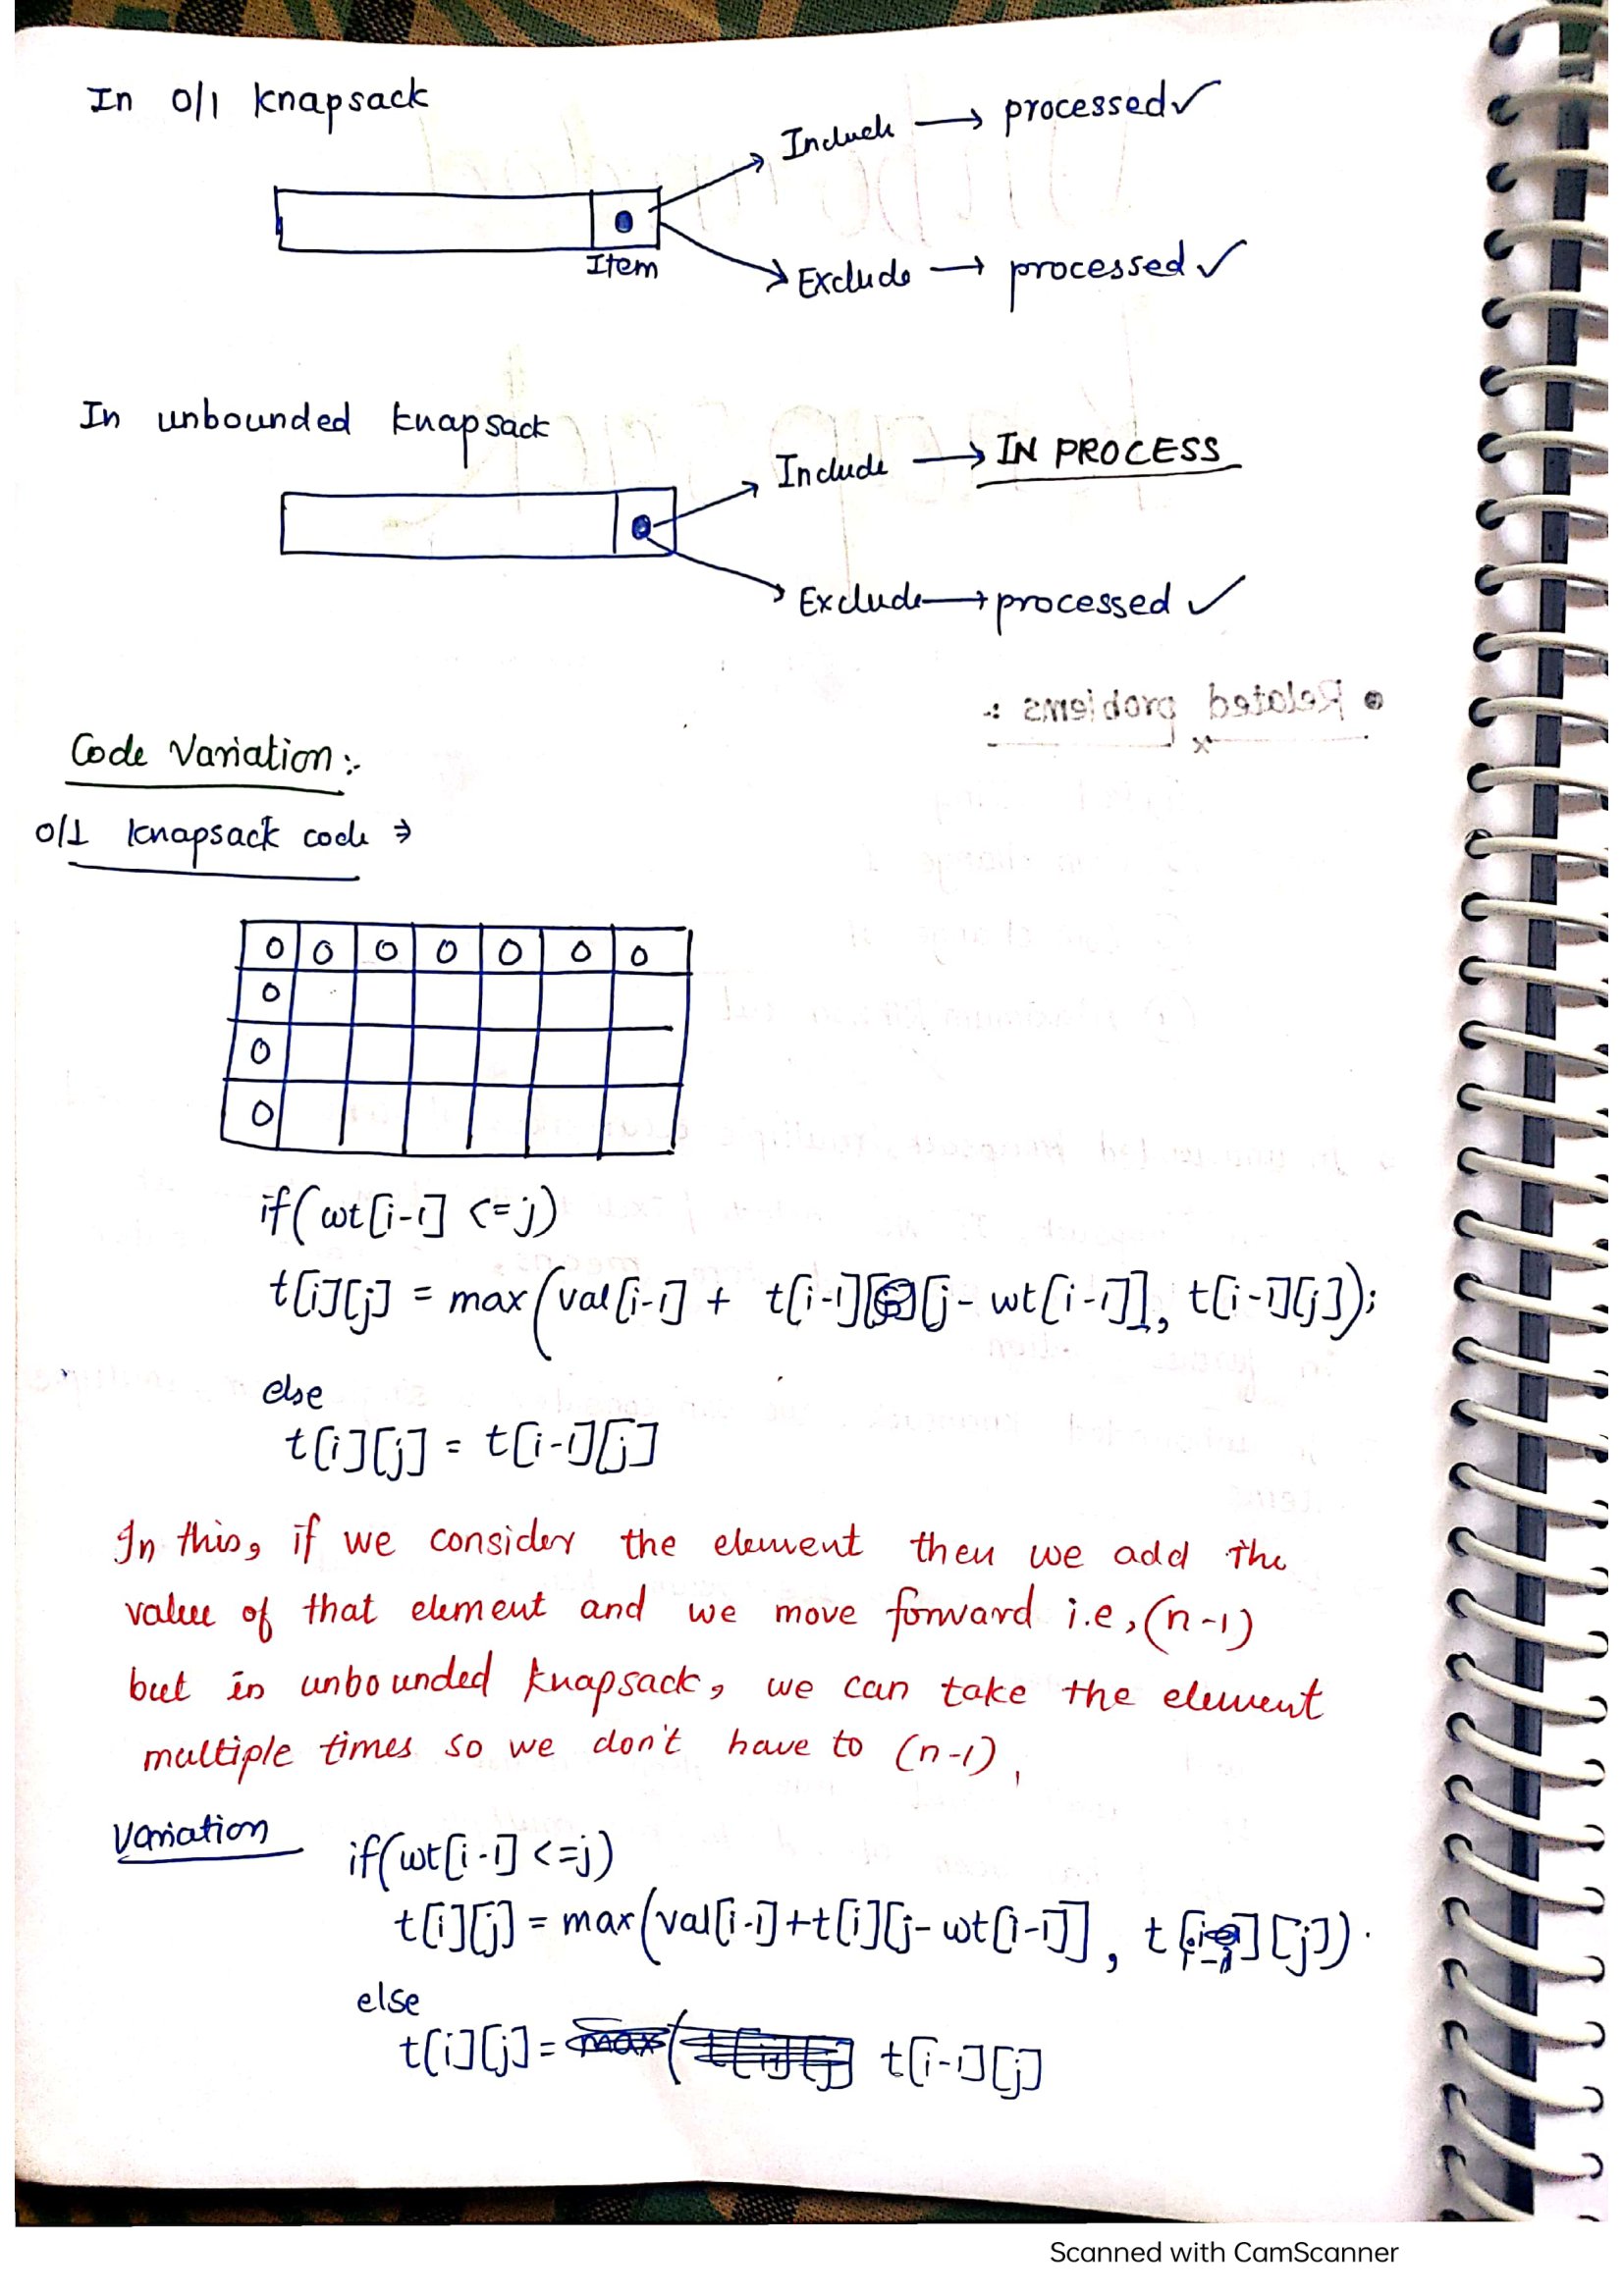 In 0/1 knapsack
Include → processed ✓
Item
Exclude → processed ✓
In unbounded knapsack
Include → IN PROCESS
Exclude → processed ✓
• Related problems :-
Code Variation :-
0/1 knapsack code ⇒
0 0 0 0 0 0 0
0
0
0
if(wt[i-1] <=j)
t[i][j] = max(val[i-1] + t[i-1][j- wt[i-1]], t[i-1][j]);
else
t[i][j] = t[i-1][j]
In this, if we consider the element then we add the
value of that element and we move forward i.e, (n-1)
but in unbounded knapsack, we can take the element
multiple times so we don't have to (n-1).
Variation
if(wt[i-1] <=j)
t[i][j] = max(val[i-1]+t[i][j- wt[i-1]], t[i-1][j]).
else
t[i][j] = t[i-1][j]
Scanned with CamScanner